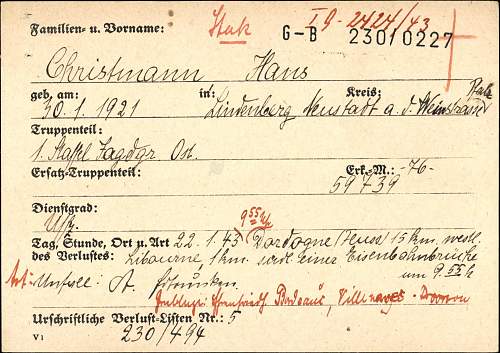 Familien- u. Vorname: Stak I 9-2424/43
G-B 230/0227
Christmann Hans
geb. am: in: Kreis: Pfalz
30.1.1921 Lindenberg Neustadt a. d. Weinstrasse
Truppenteil:
1. Staffel Jagdgr. Ost.
Ersatz-Truppenteil: Erk.-M.: -76-
59739
Dienstgrad: 9 55 h
Uffz.
Tag, Stunde, Ort u. Art 22.1.43 Dordogne 15 km westl.
des Verlustes: Libourne, 1 km südl. einer Eisenbahnbrücke
um 9.55 h
Art: Unfall: A. ertrunken.
Bordeaux,
Urschriftliche Verlust-Listen Nr.: 5
V1 230/494